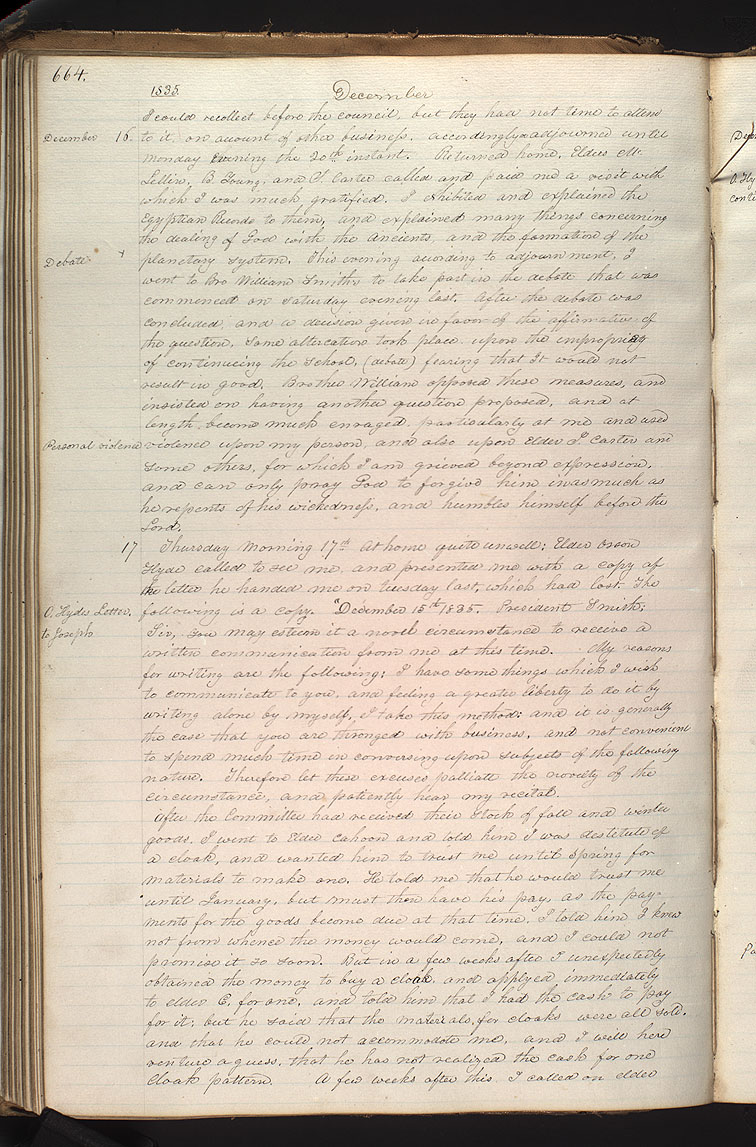 664.
1835. December
I could recollect before the council, but they had not time to attend
December 16 to it, on account of other business. accordingly adjourned until
monday evening the 20th instant. Returned home, Elders Mc
Lellin, B. Young, and J. Carter called and paid me a visit with
which I was much gratified. I exhibited and explained the
Egyptian Records to them, and explained many things concerning
the dealing of God with the ancients, and the formation of the
Debate planetary system. This evening according to adjournment, I
went to Bro William Smiths to take part in the debate that was
commenced on saturday evening last. After the debate was
concluded, and a decision given in favor of the affirmative of
the question, some altercation took place upon the impropriety
of continueing the school, (debate) fearing that It would not
result in good. Brother William opposed these measures, and
insisted on having another question proposed, and at
length become much enraged, particularly at me and used
Personal violence violence upon my person, and also upon Elder J. Carter and
some others, for which I am grieved beyond expression,
and can only pray God to forgive him inasmuch as
he repents of his wickedness, and humbles himself before the
Lord.
17 Thursday Morning 17th at home quite unwell; Elder Orson
Hyde called to see me, and presented me with a copy of
the letter he handed me on Tuesday last, which had lost. The
O. Hydes Letter. following is a copy. "December 15th 1835. President Smith;
to Joseph Sir, you may esteem it a novel circumstance to receive a
written communication from me at this time. My reasons
for writing are the following: I have some things which I wish
to communicate to you, and feeling a greater liberty to do it by
writing alone by myself, I take this method: and it is generally
the case that you are thronged with business, and not convenient
to spend much time in conversing upon subjects of the following
nature. Therefore let these excuses palliate the novelty of the
circumstance, and patiently hear my recital.
After the Committee had received their stock of fall and winter
goods, I went to Elder Cahoon and told him I was destitute of
a cloak, and wanted him to trust me until spring for
materials to make one. He told me that he would trust me
until January, but must then have his pay, as the pay-
ments for the goods become due at that time. I told him I knew
not from whence the money would come, and I could not
promise it so soon. But in a few weeks after I unexpectedly
obtained the money to buy a cloak, and applyed immediately
to elder C. for one, and told him that I had the cash to pay
for it; but he said that the materials for cloaks were all sold.
and that he could not accommodate me, and I will here
venture a guess, that he has not realized the cash for one
cloak pattern. A few weeks after this, I called on elder